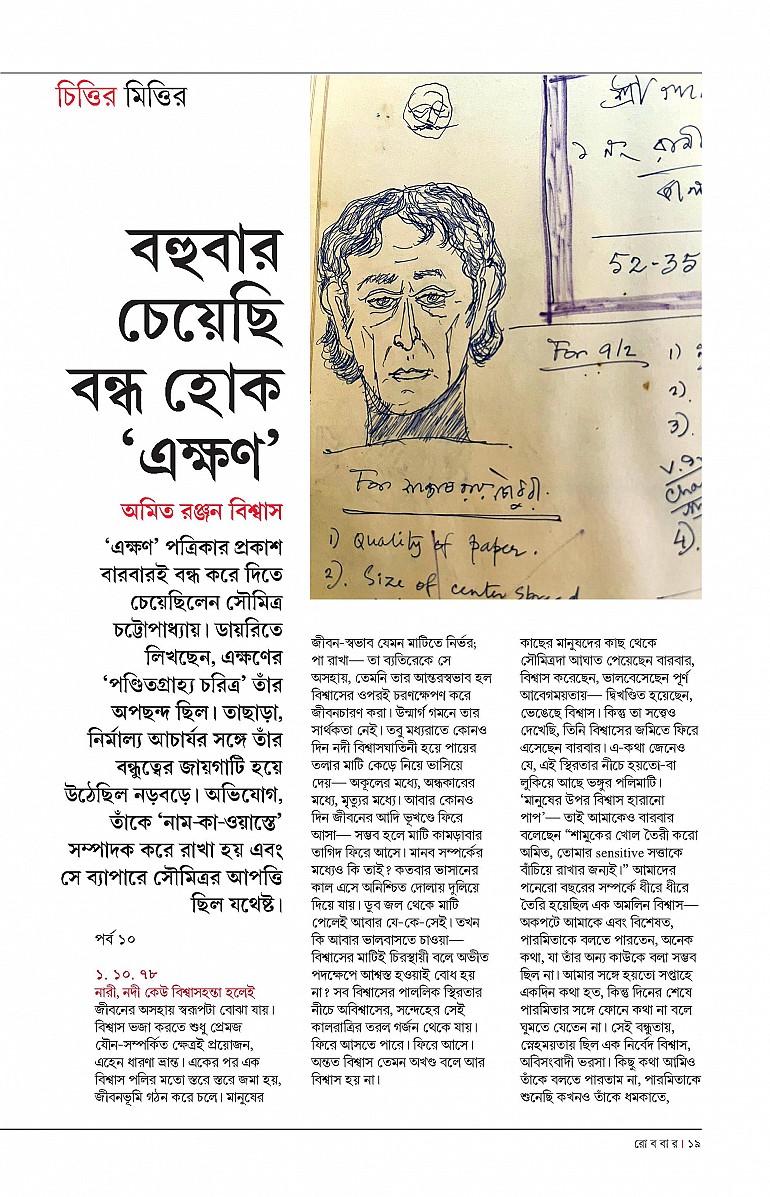 চিত্তির মিত্তির
বহুবার
চেয়েছি
বন্ধ হোক
‘এক্ষণ’
অমিত রঞ্জন বিশ্বাস
‘এক্ষণ’ পত্রিকার প্রকাশ
বারবারই বন্ধ করে দিতে
চেয়েছিলেন সৌমিত্র
চট্টোপাধ্যায়। ডায়রিতে
লিখছেন, এক্ষণের
‘পণ্ডিতগ্রাহ্য চরিত্র’ তাঁর
অপছন্দ ছিল। তাছাড়া,
নির্মাল্য আচার্যর সঙ্গে তাঁর
বন্ধুত্বের জায়গাটি হয়ে
উঠেছিল নড়বড়ে। অভিযোগ,
তাঁকে ‘নাম-কা-ওয়াস্তে’
সম্পাদক করে রাখা হয় এবং
সে ব্যাপারে সৌমিত্রর আপত্তি
ছিল যথেষ্ট।
পর্ব ১০
১. ১০. ৭৮
নারী, নদী কেউ বিশ্বাসহন্তা হলেই
জীবনের অসহায় স্বরূপটা বোঝা যায়।
বিশ্বাস ভজা করতে শুধু প্রেমজ
যৌন-সম্পর্কিত ক্ষেত্রই প্রয়োজন,
এহেন ধারণা ভ্রান্ত। একের পর এক
বিশ্বাস পলির মতো স্তরে স্তরে জমা হয়,
জীবনভূমি গঠন করে চলে। মানুষের
52-35
For 9/2
1)
2).
3).
4).
For
1) Quality of paper.
2). Size of center spread
জীবন-স্বভাব যেমন মাটিতে নির্ভর;
পা রাখা— তা ব্যতিরেকে সে
অসহায়, তেমনি তার আন্তরস্বভাব হল
বিশ্বাসের ওপরই চরণক্ষেপণ করে
জীবনচারণ করা। উন্মার্গ গমনে তার
সার্থকতা নেই। তবু মধ্যরাতে কোনও
দিন নদী বিশ্বাসঘাতিনী হয়ে পায়ের
তলার মাটি কেড়ে নিয়ে ভাসিয়ে
দেয়— অকূলের মধ্যে, অন্ধকারের
মধ্যে, মৃত্যুর মধ্যে। আবার কোনও
দিন জীবনের আদি ভূখণ্ডে ফিরে
আসা— সম্ভব হলে মাটি কামড়াবার
তাগিদ ফিরে আসে। মানব সম্পর্কের
মধ্যেও কি তাই? কতবার ভাসানের
কাল এসে অনিশ্চিত দোলায় দুলিয়ে
দিয়ে যায়। ডুব জল থেকে মাটি
পেলেই আবার যে-কে-সেই। তখন
কি আবার ভালবাসতে চাওয়া—
বিশ্বাসের মাটিই চিরস্থায়ী বলে অভীত
পদক্ষেপে আশ্বস্ত হওয়াই বোধ হয়
না? সব বিশ্বাসের পাললিক স্থিরতার
নীচে অবিশ্বাসের, সন্দেহের সেই
কালরাত্রির তরল গর্জন থেকে যায়।
ফিরে আসতে পারে। ফিরে আসে।
অন্তত বিশ্বাস তেমন অখণ্ড বলে আর
বিশ্বাস হয় না।
কাছের মানুষদের কাছ থেকে
সৌমিত্রদা আঘাত পেয়েছেন বারবার,
বিশ্বাস করেছেন, ভালবেসেছেন পূর্ণ
আবেগময়তায়— দ্বিখণ্ডিত হয়েছেন,
ভেঙেছে বিশ্বাস। কিন্তু তা সত্ত্বেও
দেখেছি, তিনি বিশ্বাসের জমিতে ফিরে
এসেছেন বারবার। এ-কথা জেনেও
যে, এই স্থিরতার নীচে হয়তো-বা
লুকিয়ে আছে ভঙ্গুর পলিমাটি।
‘মানুষের উপর বিশ্বাস হারানো
পাপ’— তাই আমাকেও বারবার
বলেছেন “শামুকের খোল তৈরী করো
অমিত, তোমার sensitive সত্তাকে
বাঁচিয়ে রাখার জন্যই।” আমাদের
পনেরো বছরের সম্পর্কে ধীরে ধীরে
তৈরি হয়েছিল এক অমলিন বিশ্বাস—
অকপটে আমাকে এবং বিশেষত,
পারমিতাকে বলতে পারতেন, অনেক
কথা, যা তাঁর অন্য কাউকে বলা সম্ভব
ছিল না। আমার সঙ্গে হয়তো সপ্তাহে
একদিন কথা হত, কিন্তু দিনের শেষে
পারমিতার সঙ্গে ফোনে কথা না বলে
ঘুমতে যেতেন না। সেই বন্ধুতায়,
স্নেহময়তায় ছিল এক নির্বেদ বিশ্বাস,
অবিসংবাদী ভরসা। কিছু কথা আমিও
তাঁকে বলতে পারতাম না, পারমিতাকে
শুনেছি কখনও তাঁকে ধমকাতে,
রোববার। ১৯